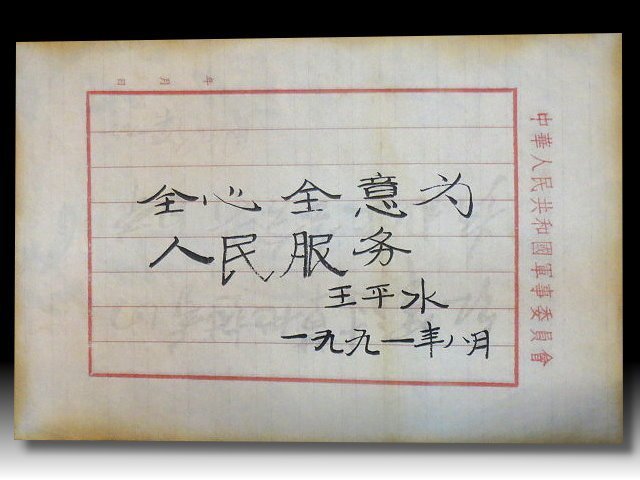 中華人民共和國軍事委員會
年 月 日
全心全意为
人民服务
王平水
一九九一年八月